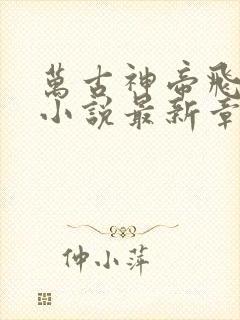 萬古神帝飛
小說最新章
仲小萍